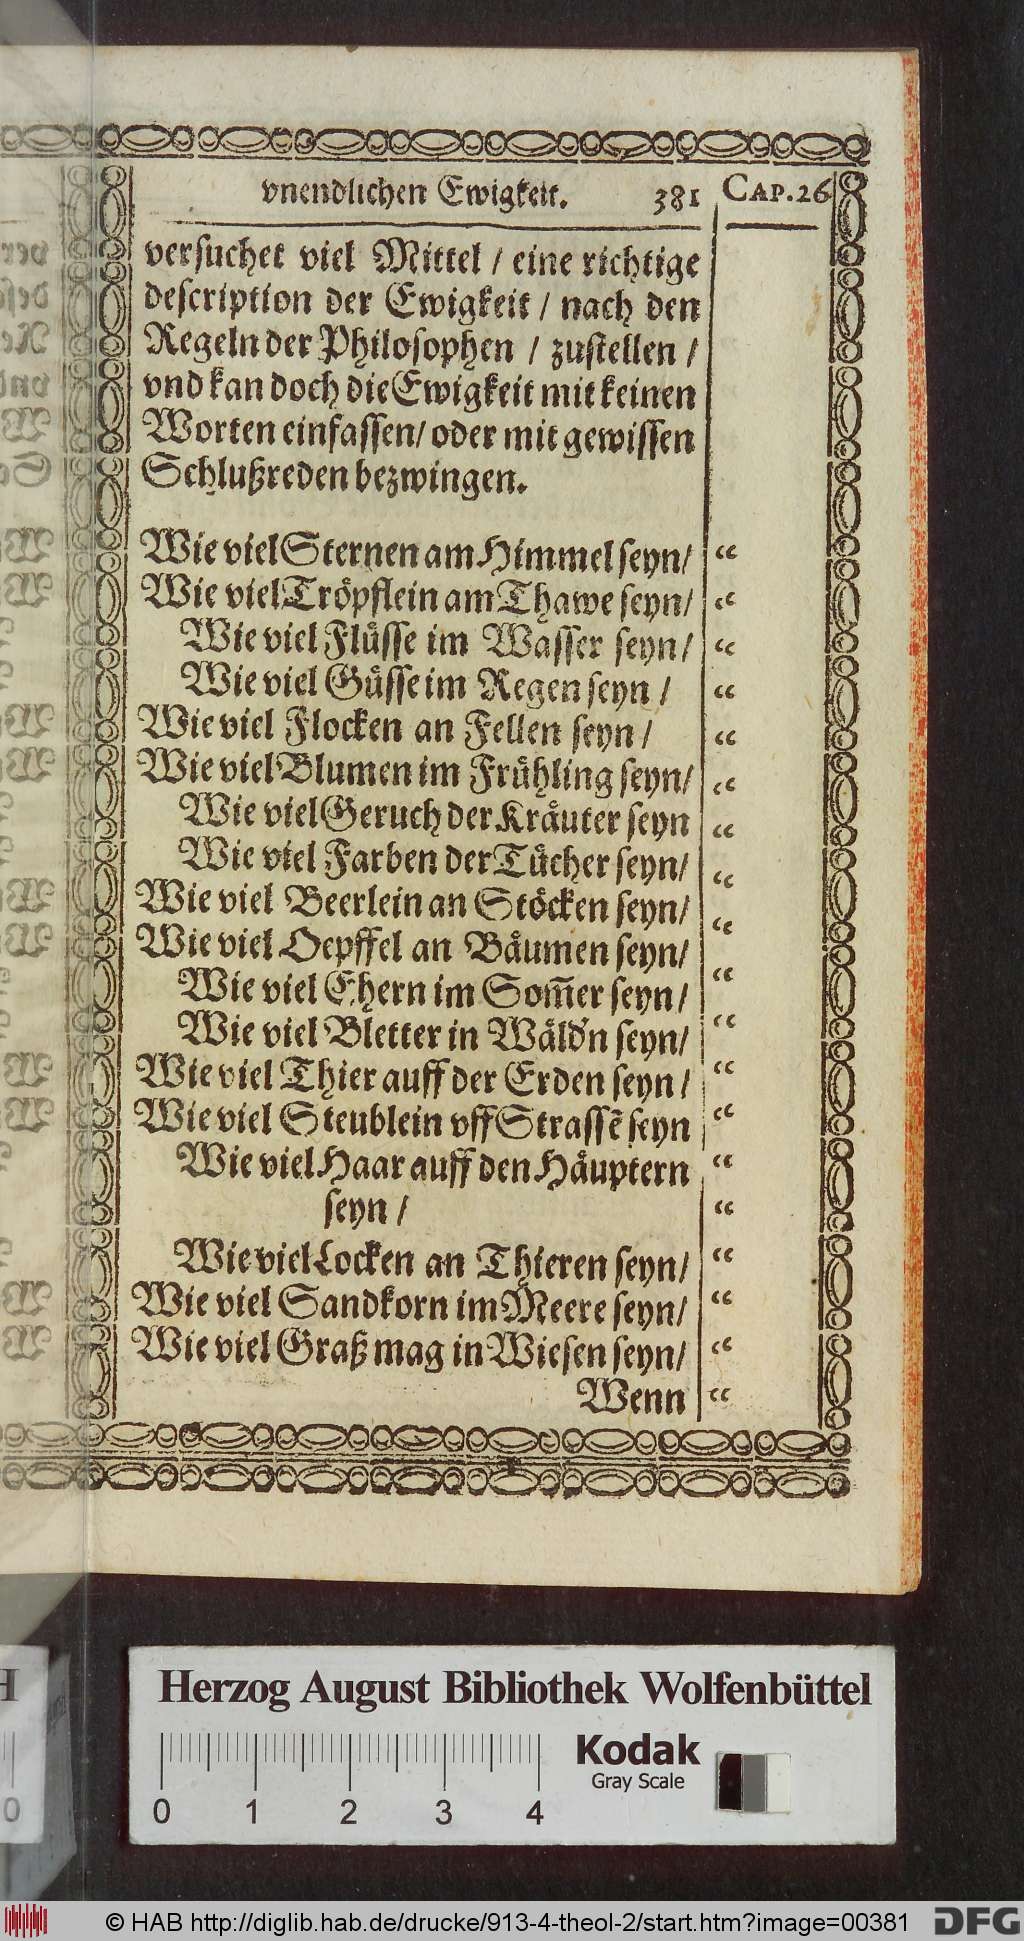 vnendlichen Ewigkeit. 381 CAP.26
versuchet viel Mittel / eine richtige
description der Ewigkeit / nach den
Regeln der Philosophen / zustellen /
vnd kan doch die Ewigkeit mit keinen
Worten einfassen / oder mit gewissen
Schlußreden bezwingen.
Wie viel Sternen am Himmel seyn / “
Wie viel Tröpflein am Thawe seyn / “
Wie viel Flüsse im Wasser seyn / “
Wie viel Güsse im Regen seyn / “
Wie viel Flocken an Fellen seyn / “
Wie viel Blumen im Frühling seyn / “
Wie viel Geruch der Kräuter seyn “
Wie viel Farben der Tücher seyn / “
Wie viel Beerlein an Stöcken seyn / “
Wie viel Oepffel an Bäumen seyn / “
Wie viel Ehern im Som̅er seyn / “
Wie viel Bletter in Wäld'n seyn / “
Wie viel Thier auff der Erden seyn / “
Wie viel Steublein vff Strassẽ seyn “
Wie viel Haar auff den Häuptern “
seyn / “
Wie viel Locken an Thieren seyn / “
Wie viel Sandkorn im Meere seyn / “
Wie viel Graß mag in Wiesen seyn / “
Wenn “
Herzog August Bibliothek Wolfenbüttel
Kodak
Gray Scale
0 1 2 3 4
© HAB http://diglib.hab.de/drucke/913-4-theol-2/start.htm?image=00381 DFG